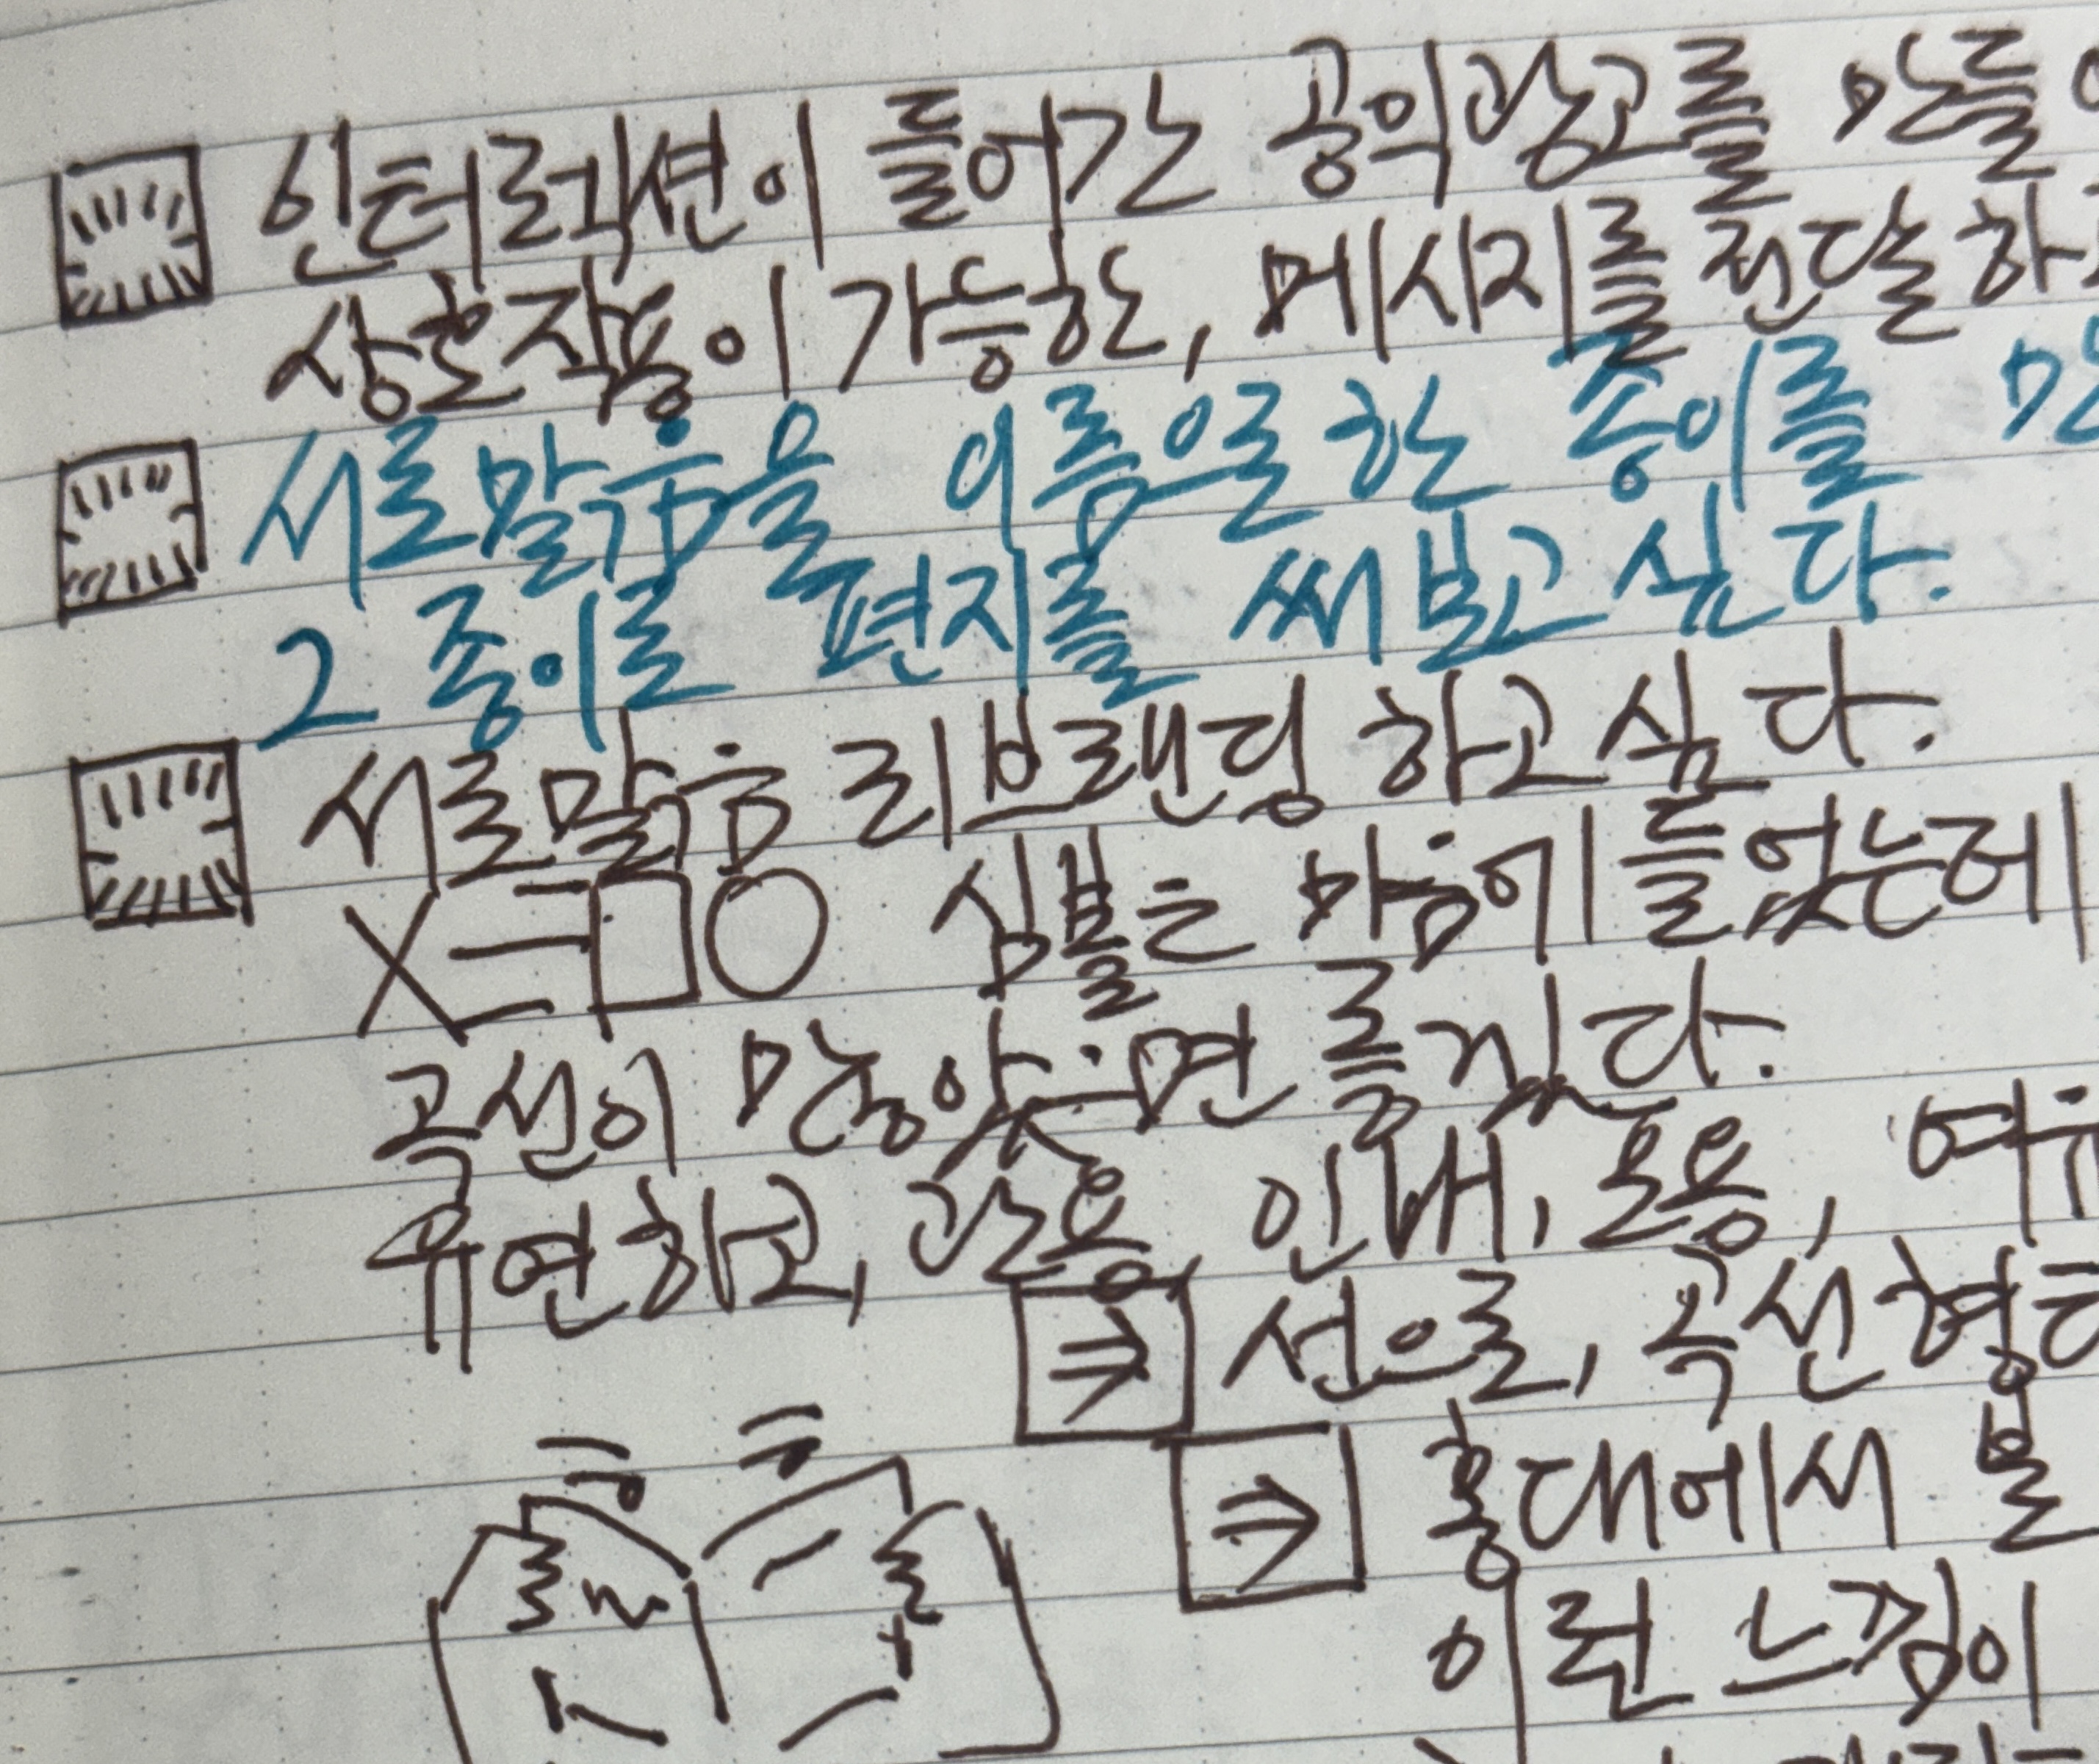 인터렉션이 들어간 공익광고를 만들
상호작용이 가능한, 메시지를 전달하
서로맑음을 이름으로한 종이를
그 종이로 편지를 써보고싶다.
서로맑음 리브랜딩 하고싶다.
심볼은 마음에들었는데
곡선이 많았으면 좋겠다.
유연하고, 관용, 인내, 온용, 여유
선으로, 곡선형
홍대에서 볼
이런 느낌이